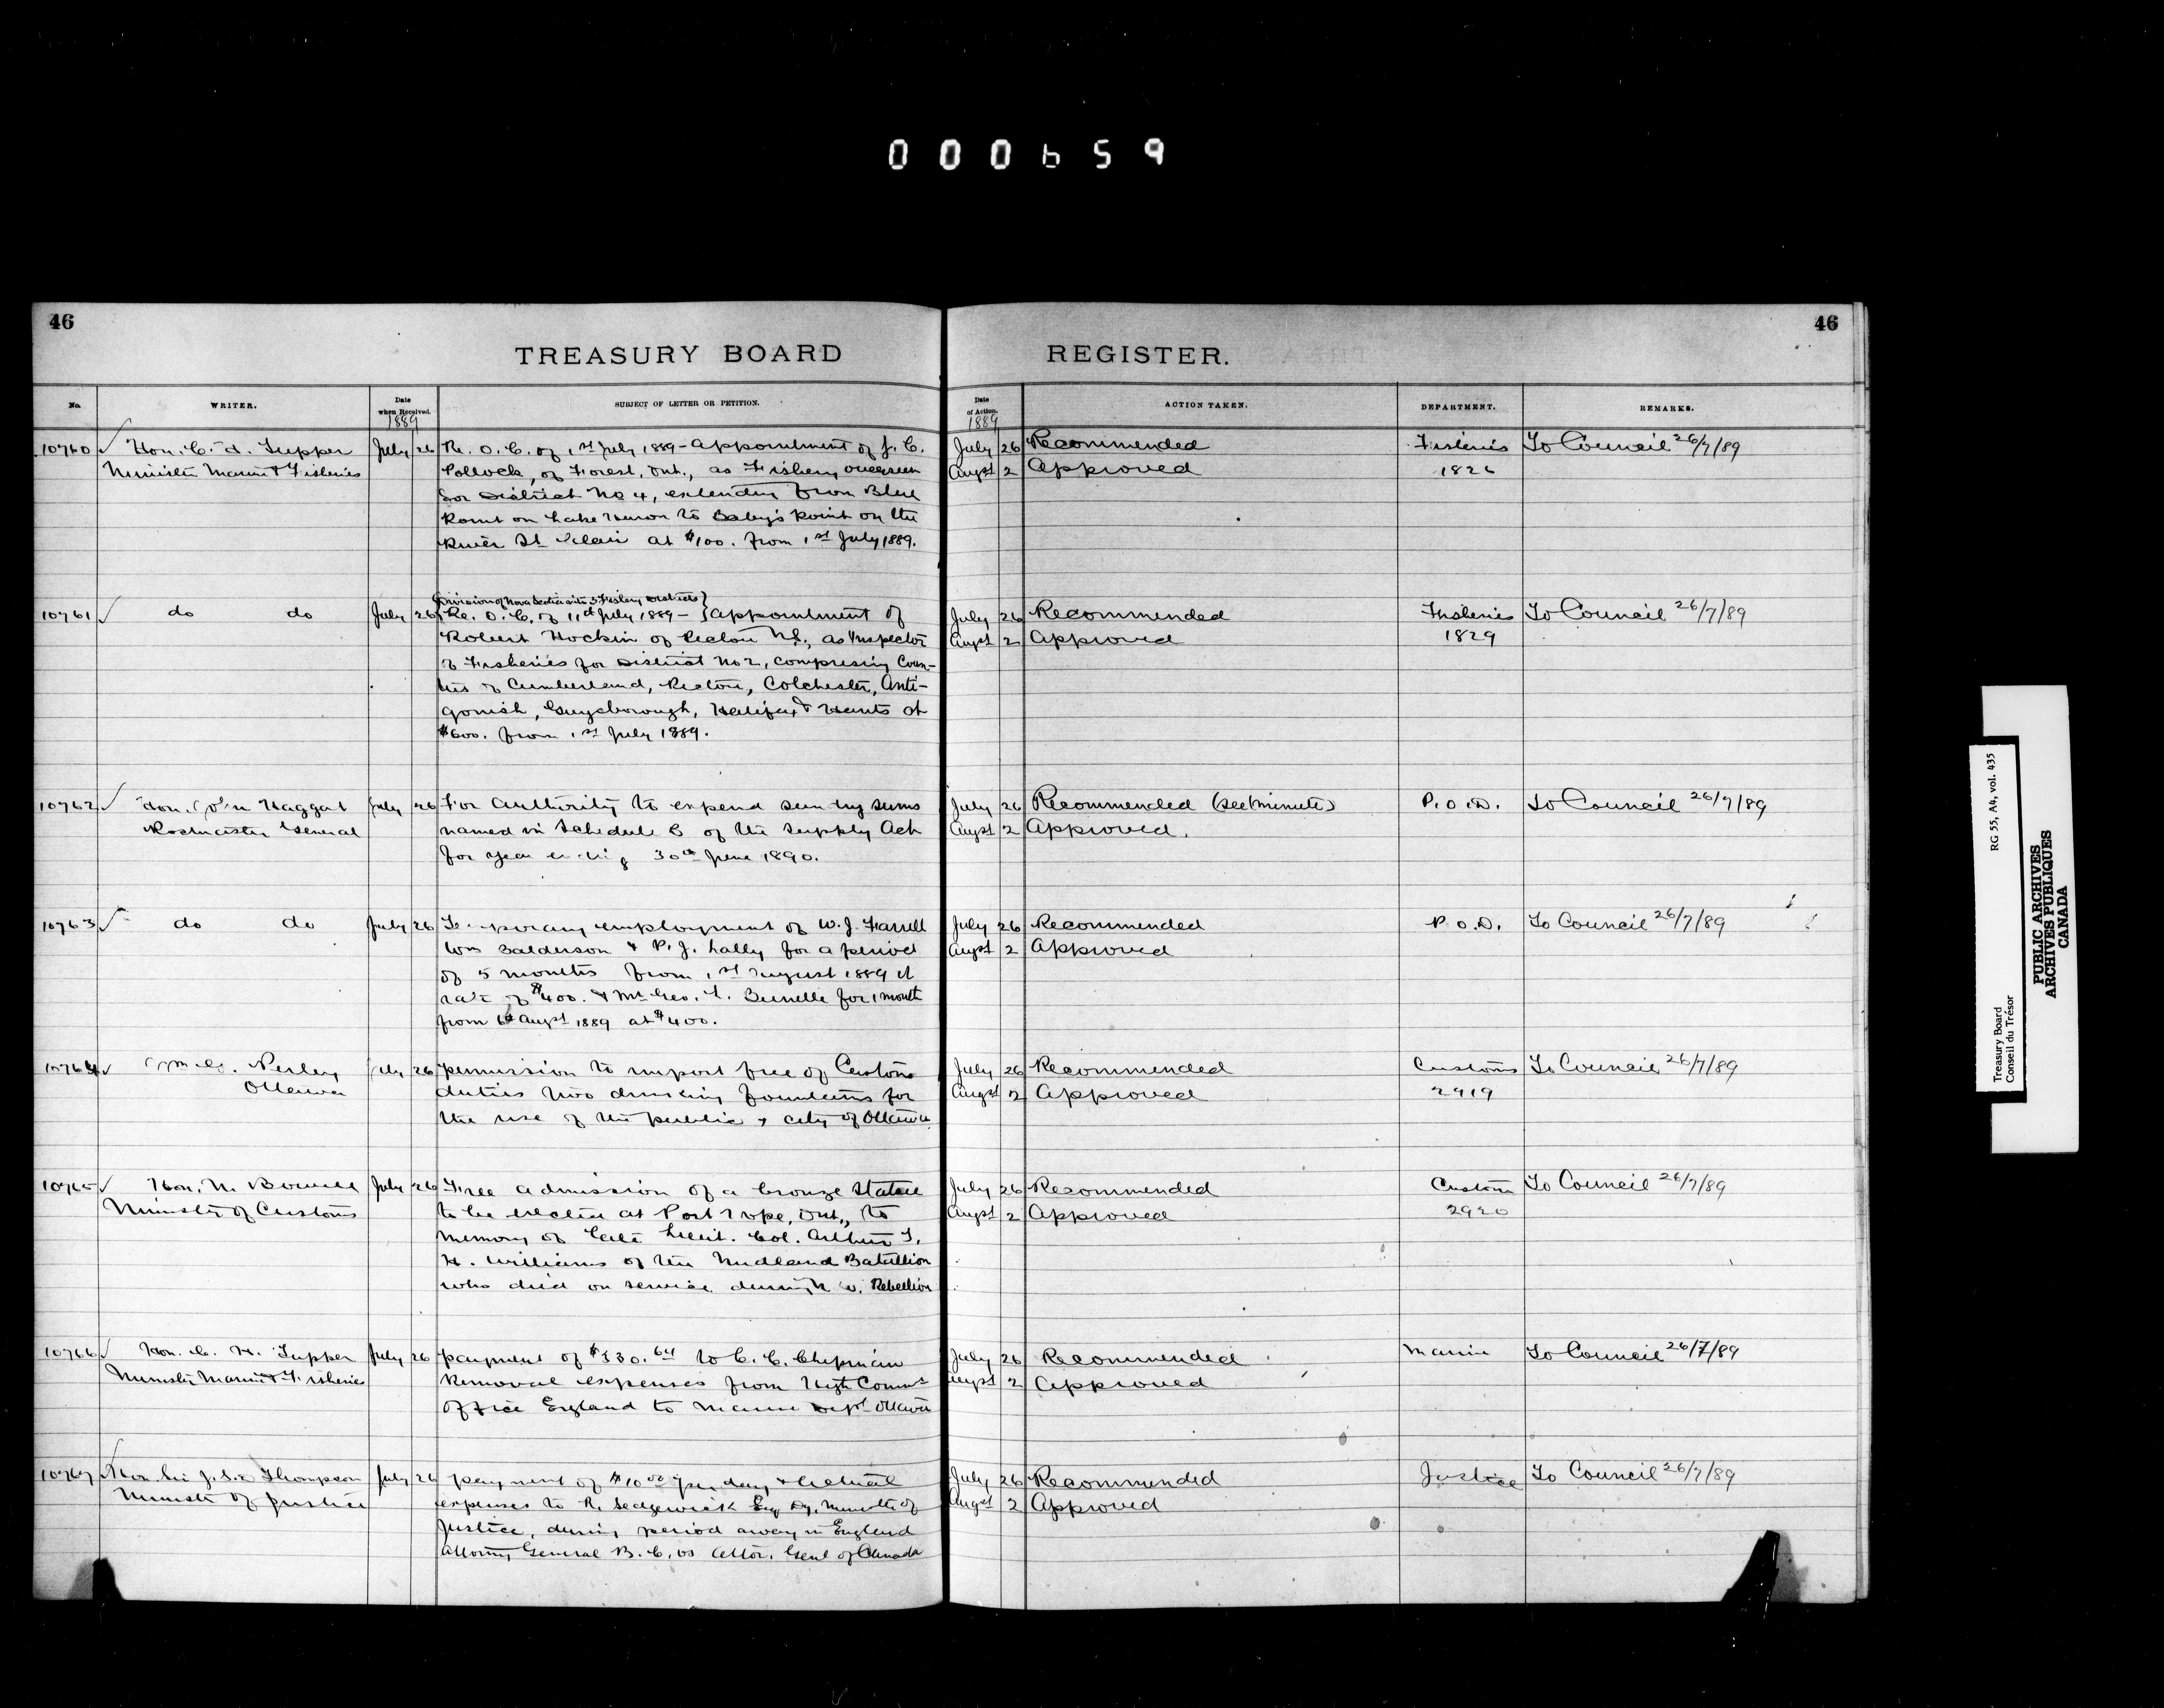 000659
46
46
TREASURY BOARD REGISTER.
No. WRITER. Date when Received. SUBJECT OF LETTER OR PETITION. Date of Action. ACTION TAKEN. DEPARTMENT. REMARKS.
1889 1889
10760 Hon. C. H. Tupper July 26 Re. O.C. of 1st July 1889 - appointment of J. C. July 26 Recommended Fisheries To Council 26/7/89
Minister Marine & Fisheries Pollock, of Forest, Ont., as Fishery overseer Augst 2 Approved 1826
for District No 4, extending from Blue
Point on Lake Huron to Baby's Point on the
River St Clair at $100. from 1st July 1889.
Division of Nova Scotia into 3 Fishery Districts
10761 do do July 26 Re. O.C. of 11th July 1889 - appointment of July 26 Recommended Fisheries To Council 26/7/89
Robert Hockin of Pictou N.S., as Inspector Augst 2 Approved 1829
of Fisheries for District No 2, comprising Coun-
ties of Cumberland, Pictou, Colchester, Anti-
gonish, Guysborough, Halifax & Hants at
$600. from 1st July 1889.
10762 Hon. John Haggart July 26 For authority to expend sundry sums July 26 Recommended (see minute) P.O.D. To Council 26/7/89
Postmaster General named in Schedule C of the Supply Act Augst 2 Approved.
for year ending 30th June 1890.
10763 do do July 26 Temporary employment of W. J. Farrell July 26 Recommended P.O.D. To Council 26/7/89
Wm Balderson & P. J. Lally for a period Augst 2 Approved
of 5 months from 1st August 1889 at
rate of $400. & Mr Geo. L. Brunelle for 1 month
from 6th Augst 1889 at $400.
10764 July 26 permission to import free of Customs July 26 Recommended Customs To Council 26/7/89
Ottawa duties two drinking fountains for Augst 2 Approved 2919
the use of the public, city of Ottawa
10765 Hon. M. Bowell July 26 Free admission of a bronze statue July 26 Recommended Customs To Council 26/7/89
Minister of Customs to be erected at Port Hope, Ont., to Augst 2 Approved 2920
memory of late Lieut. Col. Arthur T.
H. Williams of the Midland Batallion
who died on service during N.W. Rebellion
10766 Hon. C. H. Tupper July 26 payment of $330.64 to C. C. Chipman July 26 Recommended Marine To Council 26/7/89
Minister Marine & Fisheries Removal expenses from High Commr Augst 2 Approved
Office England to Marine Dept Ottawa
10767 Hon. Sir J. S. D. Thompson July 26 payment of $10.00 per day & actual July 26 Recommended Justice To Council 26/7/89
Minister of Justice expenses to R. Sedgewick Esq Dy. Minister of Augst 2 Approved
Justice, during period away in England
Attorney General B.C. vs Attor. Genl of Canada
RG 55, A4, vol. 435
Treasury Board
Conseil du Trésor
PUBLIC ARCHIVES
ARCHIVES PUBLIQUES
CANADA